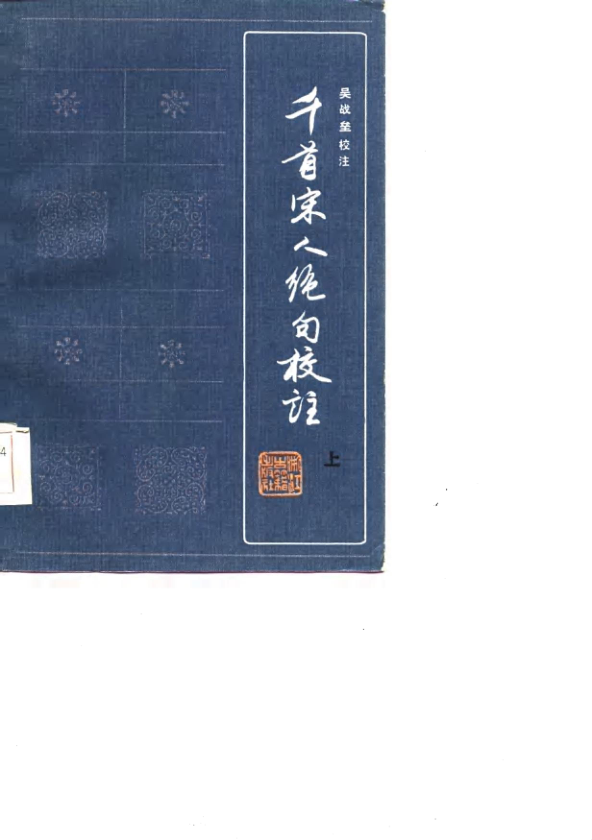 吴战垒校注
千首宋人绝句校註
上
浙江古籍出版社
4